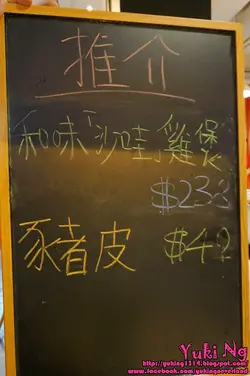 推介
和味「沙哇」雞煲
$238
豬皮 $42
Yuki Ng
http://yuking1314.blogspot.com
www.facebook.com/yukingaoverland